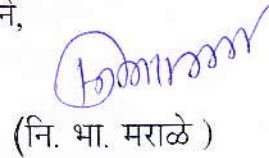 ने,
(नि. भा. मराळे )